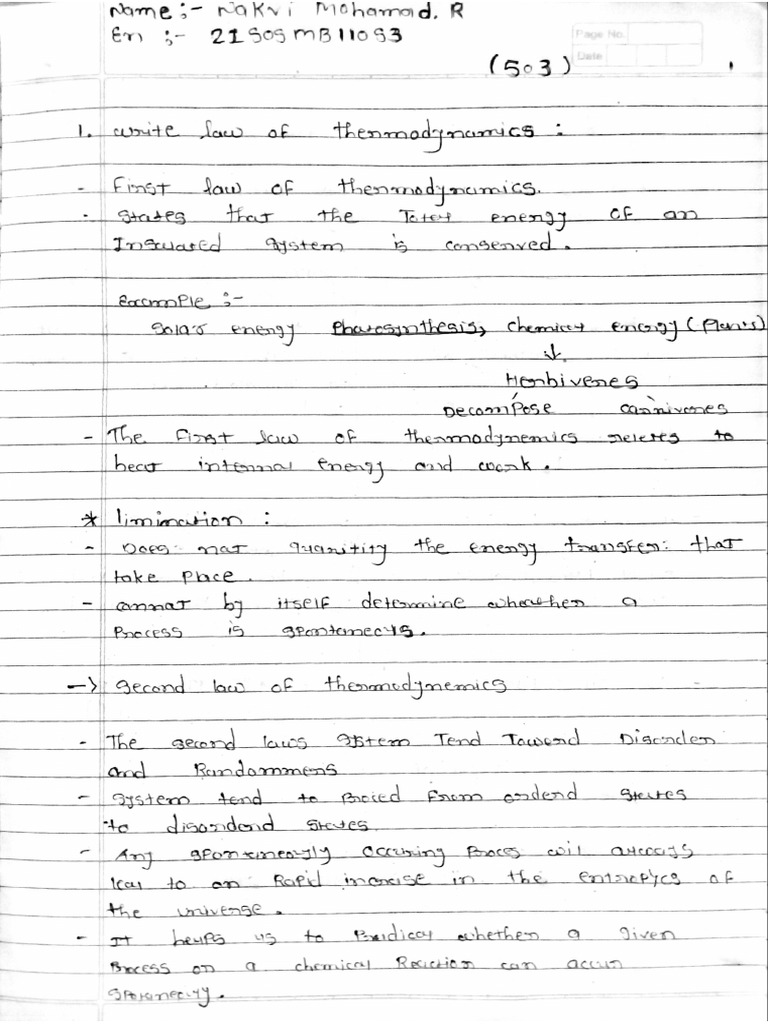 Name :- Nakvi Mohamad. R
En :- 21SOSMB11053
Page No.
Date
(503)
1. write law of thermodynamics :
- First law of thermodynamics.
- states that the Totel energy of an
Insulated system is conserved.
Example :-
Solar energy Photosynthesis, chemical energy (Plants)
↓
Herbivores
Decompose carnivores
- The first law of thermodynemics reletes to
heat internal energy and work.
* limination :
- Does not quanitity the energy transfer: that
take place.
- cannot by itself determine wheather a
Process is spontaneous.
-> second law of thermodynemics
- The second laws system Tend Toward Disorder
and Randommens
- system tend to from ordend states
to disordend states.
- Any occuring Proces will
to an Rapid increise in the of
the universe.
- It helps us to whether a given
Process on a chemical Reaction can accur